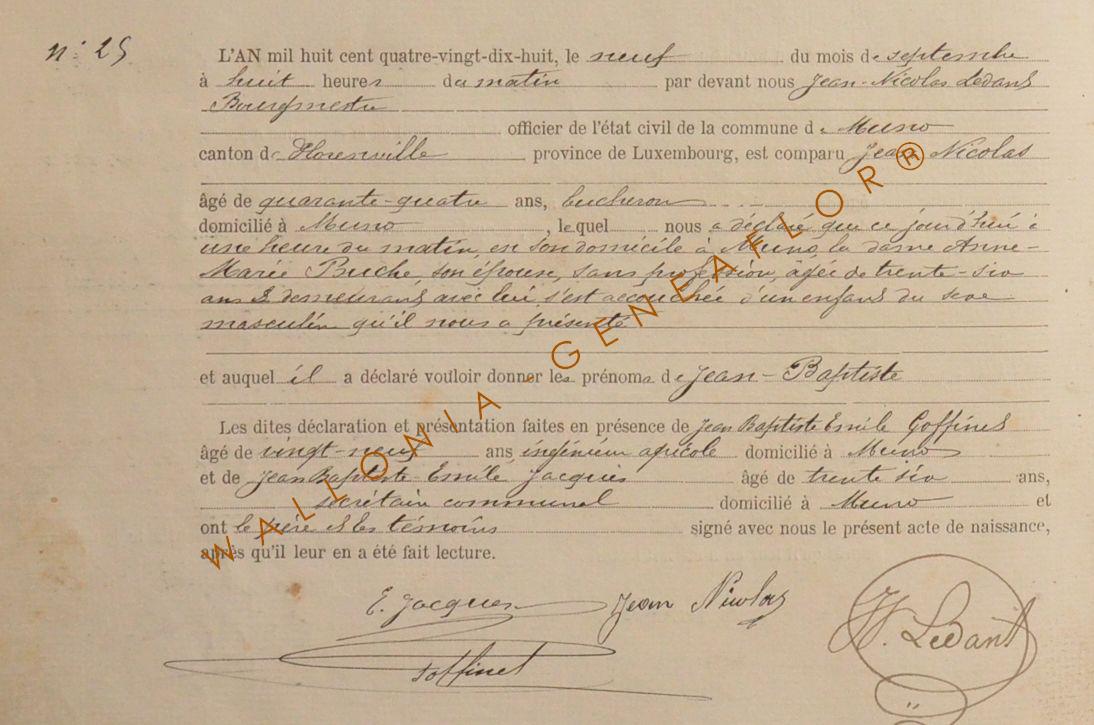 n° 25
L'AN mil huit cent quatre-vingt-dix-huit, le neuf du mois de septembre
à huit heures du matin par devant nous Jean-Nicolas Ledant
Bourgmestre
officier de l'état civil de la commune de Muno
canton de Florenville province de Luxembourg, est comparu Jean Nicolas
âgé de quarante-quatre ans, bucheron
domicilié à Muno, lequel nous a déclaré que ce jourd'hui à
une heure du matin, en son domicile à Muno, la dame Anne-
Marie Buche, son épouse, sans profession, âgée de trente-six
ans & demeurant avec lui, s'est accouchée d'un enfant du sexe
masculin qu'il nous a présenté
et auquel il a déclaré vouloir donner les prénoms de Jean-Baptiste
Les dites déclaration et présentation faites en présence de Jean Baptiste Emile Goffinet
âgé de vingt-neuf ans, ingénieur agricole domicilié à Muno
et de Jean Baptiste-Emile Jacques âgé de trente six ans,
secrétaire communal domicilié à Muno et
ont le père et les témoins signé avec nous le présent acte de naissance,
après qu'il leur en a été fait lecture.
E. Jacques Jean Nicolas
J. Ledant
Goffinet
WALLONIA - GENEAFLOR®